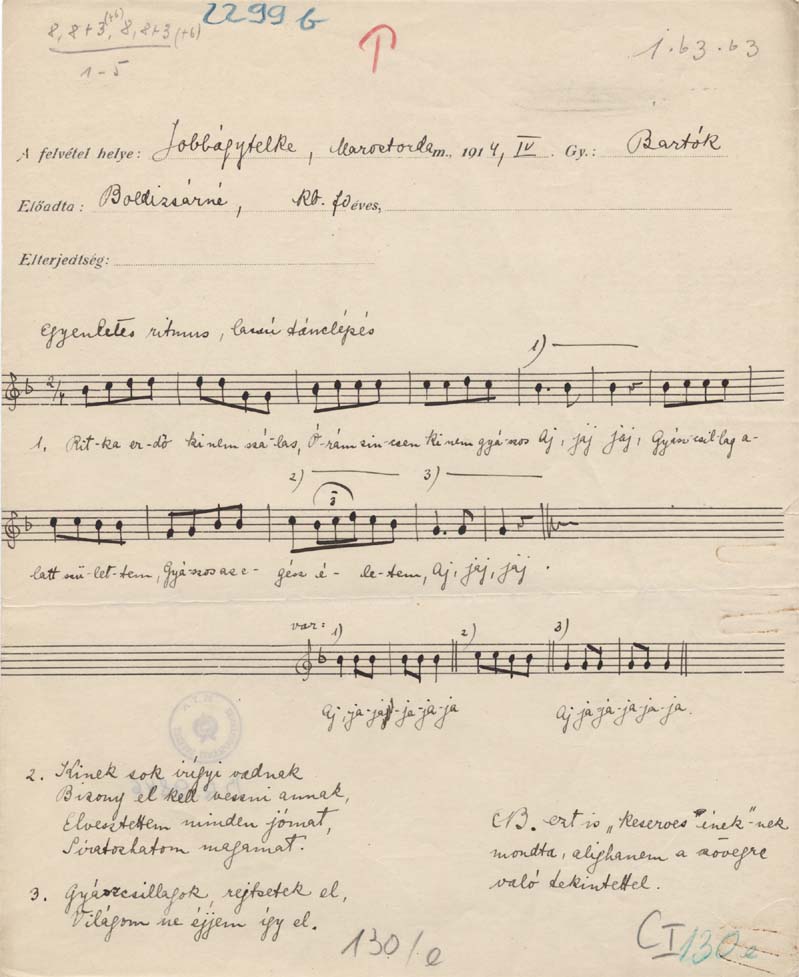 2299 b
8, 8+3(+6), 8, 8+3(+6)
1-5
1. b3. b3
A felvétel helye: Jobbágytelke, Marostorda m., 1914, IV. Gy.: Bartók
Előadta: Boldizsárné, kb. éves,
Elterjedtség:
Egyenletes ritmus, lassú tánclépés
1)
2/4
1. Rit-ka er-dő ki nem szá-las, Ó-rám sin-csen ki nem gyá-szos Aj, jaj jaj, Gyász-csil-lag a-
2) 3)
3
latt szü-let-tem, Gyá-szos az e-gész é-le-tem, Aj, jaj, jaj.
var: 1) 2) 3)
Aj, ja-jaj-ja-ja-ja Aj ja ja-ja-ja-ja.
2. Kinek sok irigyi vadnak
Bizony el kell veszni annak,
Elvesztettem minden jómat,
Siratozhatom magamat.
NB. ezt is „keserves ének"-nek
mondta, alighanem a szövegre
való tekintettel.
3. Gyászcsillagok, rejtsetek el,
Világom ne éjjem így el.
130/e
CI 130e